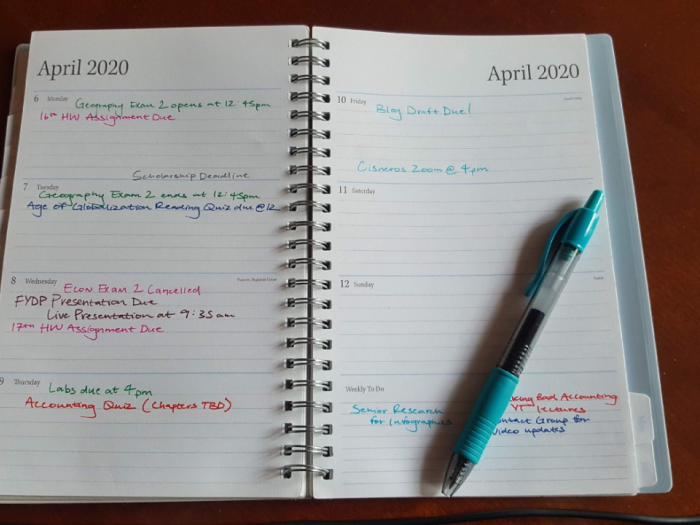 April 2020
6 Monday
Geography Exam 2 opens at 12:45pm
16th HW Assignment Due
Scholarship Deadline
7 Tuesday
Geography Exam 2 ends at 12:45pm
Age of Globalization Reading Quiz due @ 12
8 Wednesday
Econ Exam 2 Cancelled
FYDP Presentation Due
Live Presentation at 9:35am
17th HW Assignment Due
9 Thursday
Labs due at 4pm
Accounting Quiz (Chapters TBD)
April 2020
10 Friday
Blog Draft Due!
Cisneros Zoom @ 4pm
11 Saturday
12 Sunday
Weekly To Do
Senior Research
for Infographics
Accounting
YT lectures
Group for
video updates